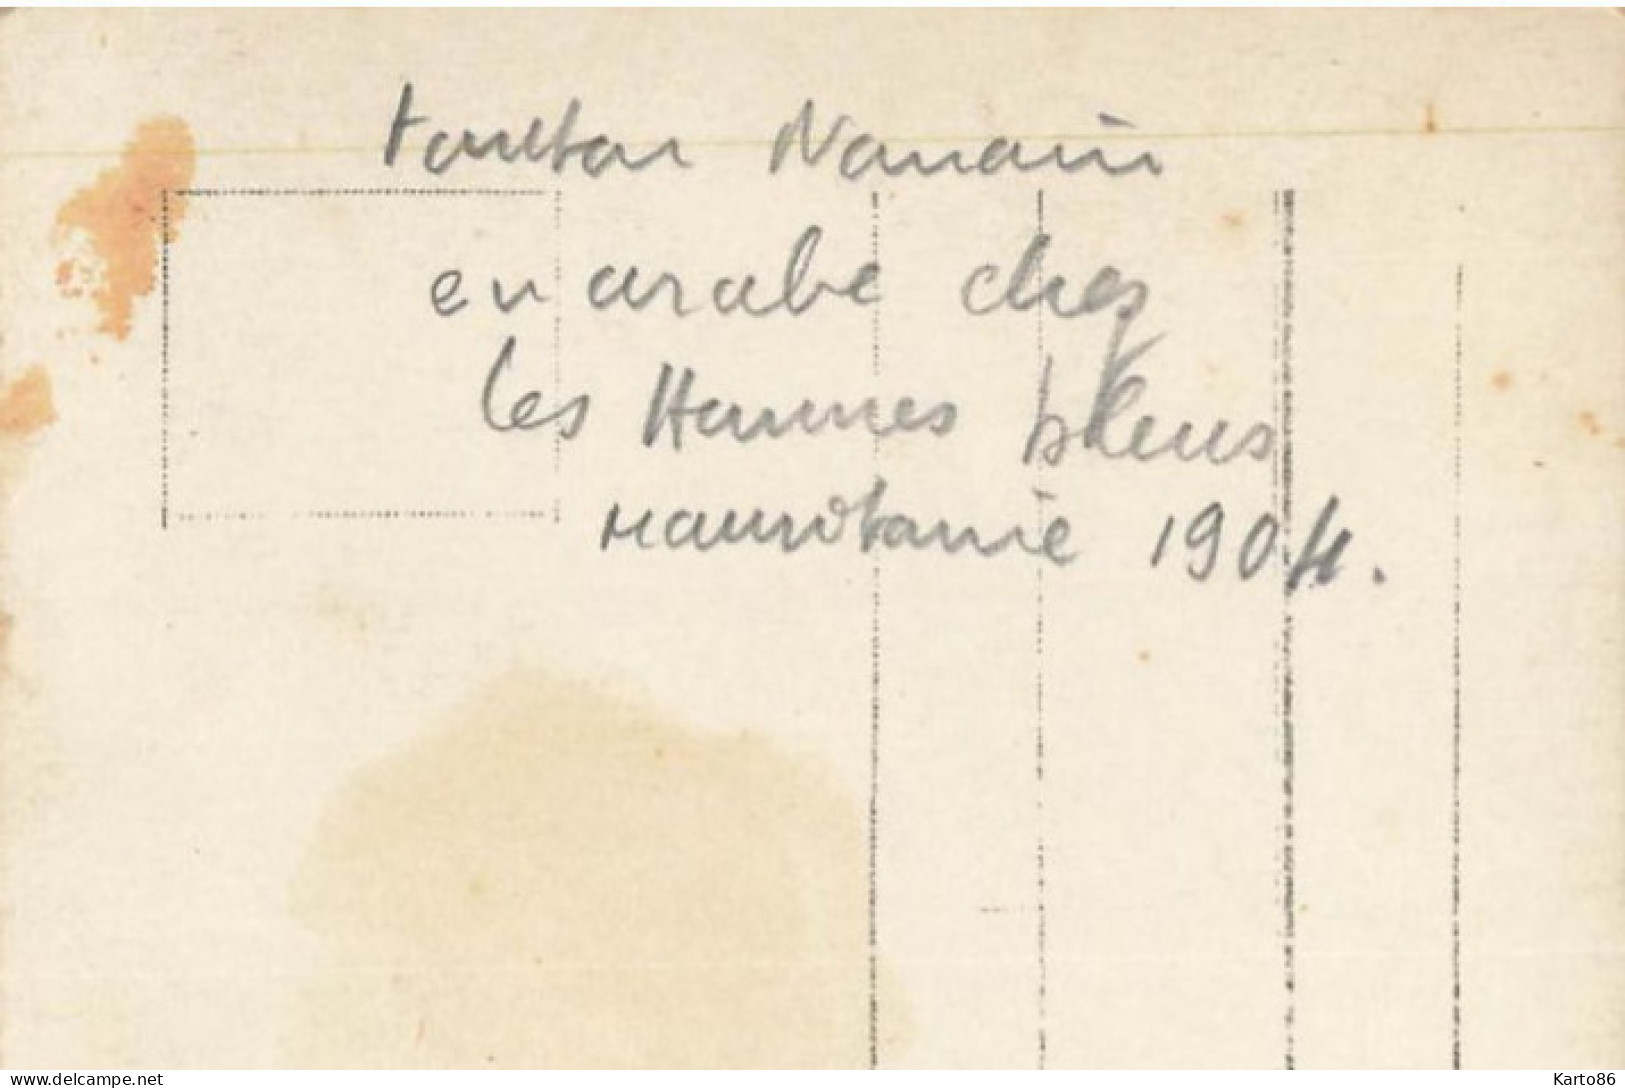 tonton Nanain
en arabe chez
les Hommes bleus
Mauritanie 1904.
www.delcampe.net
Karto86